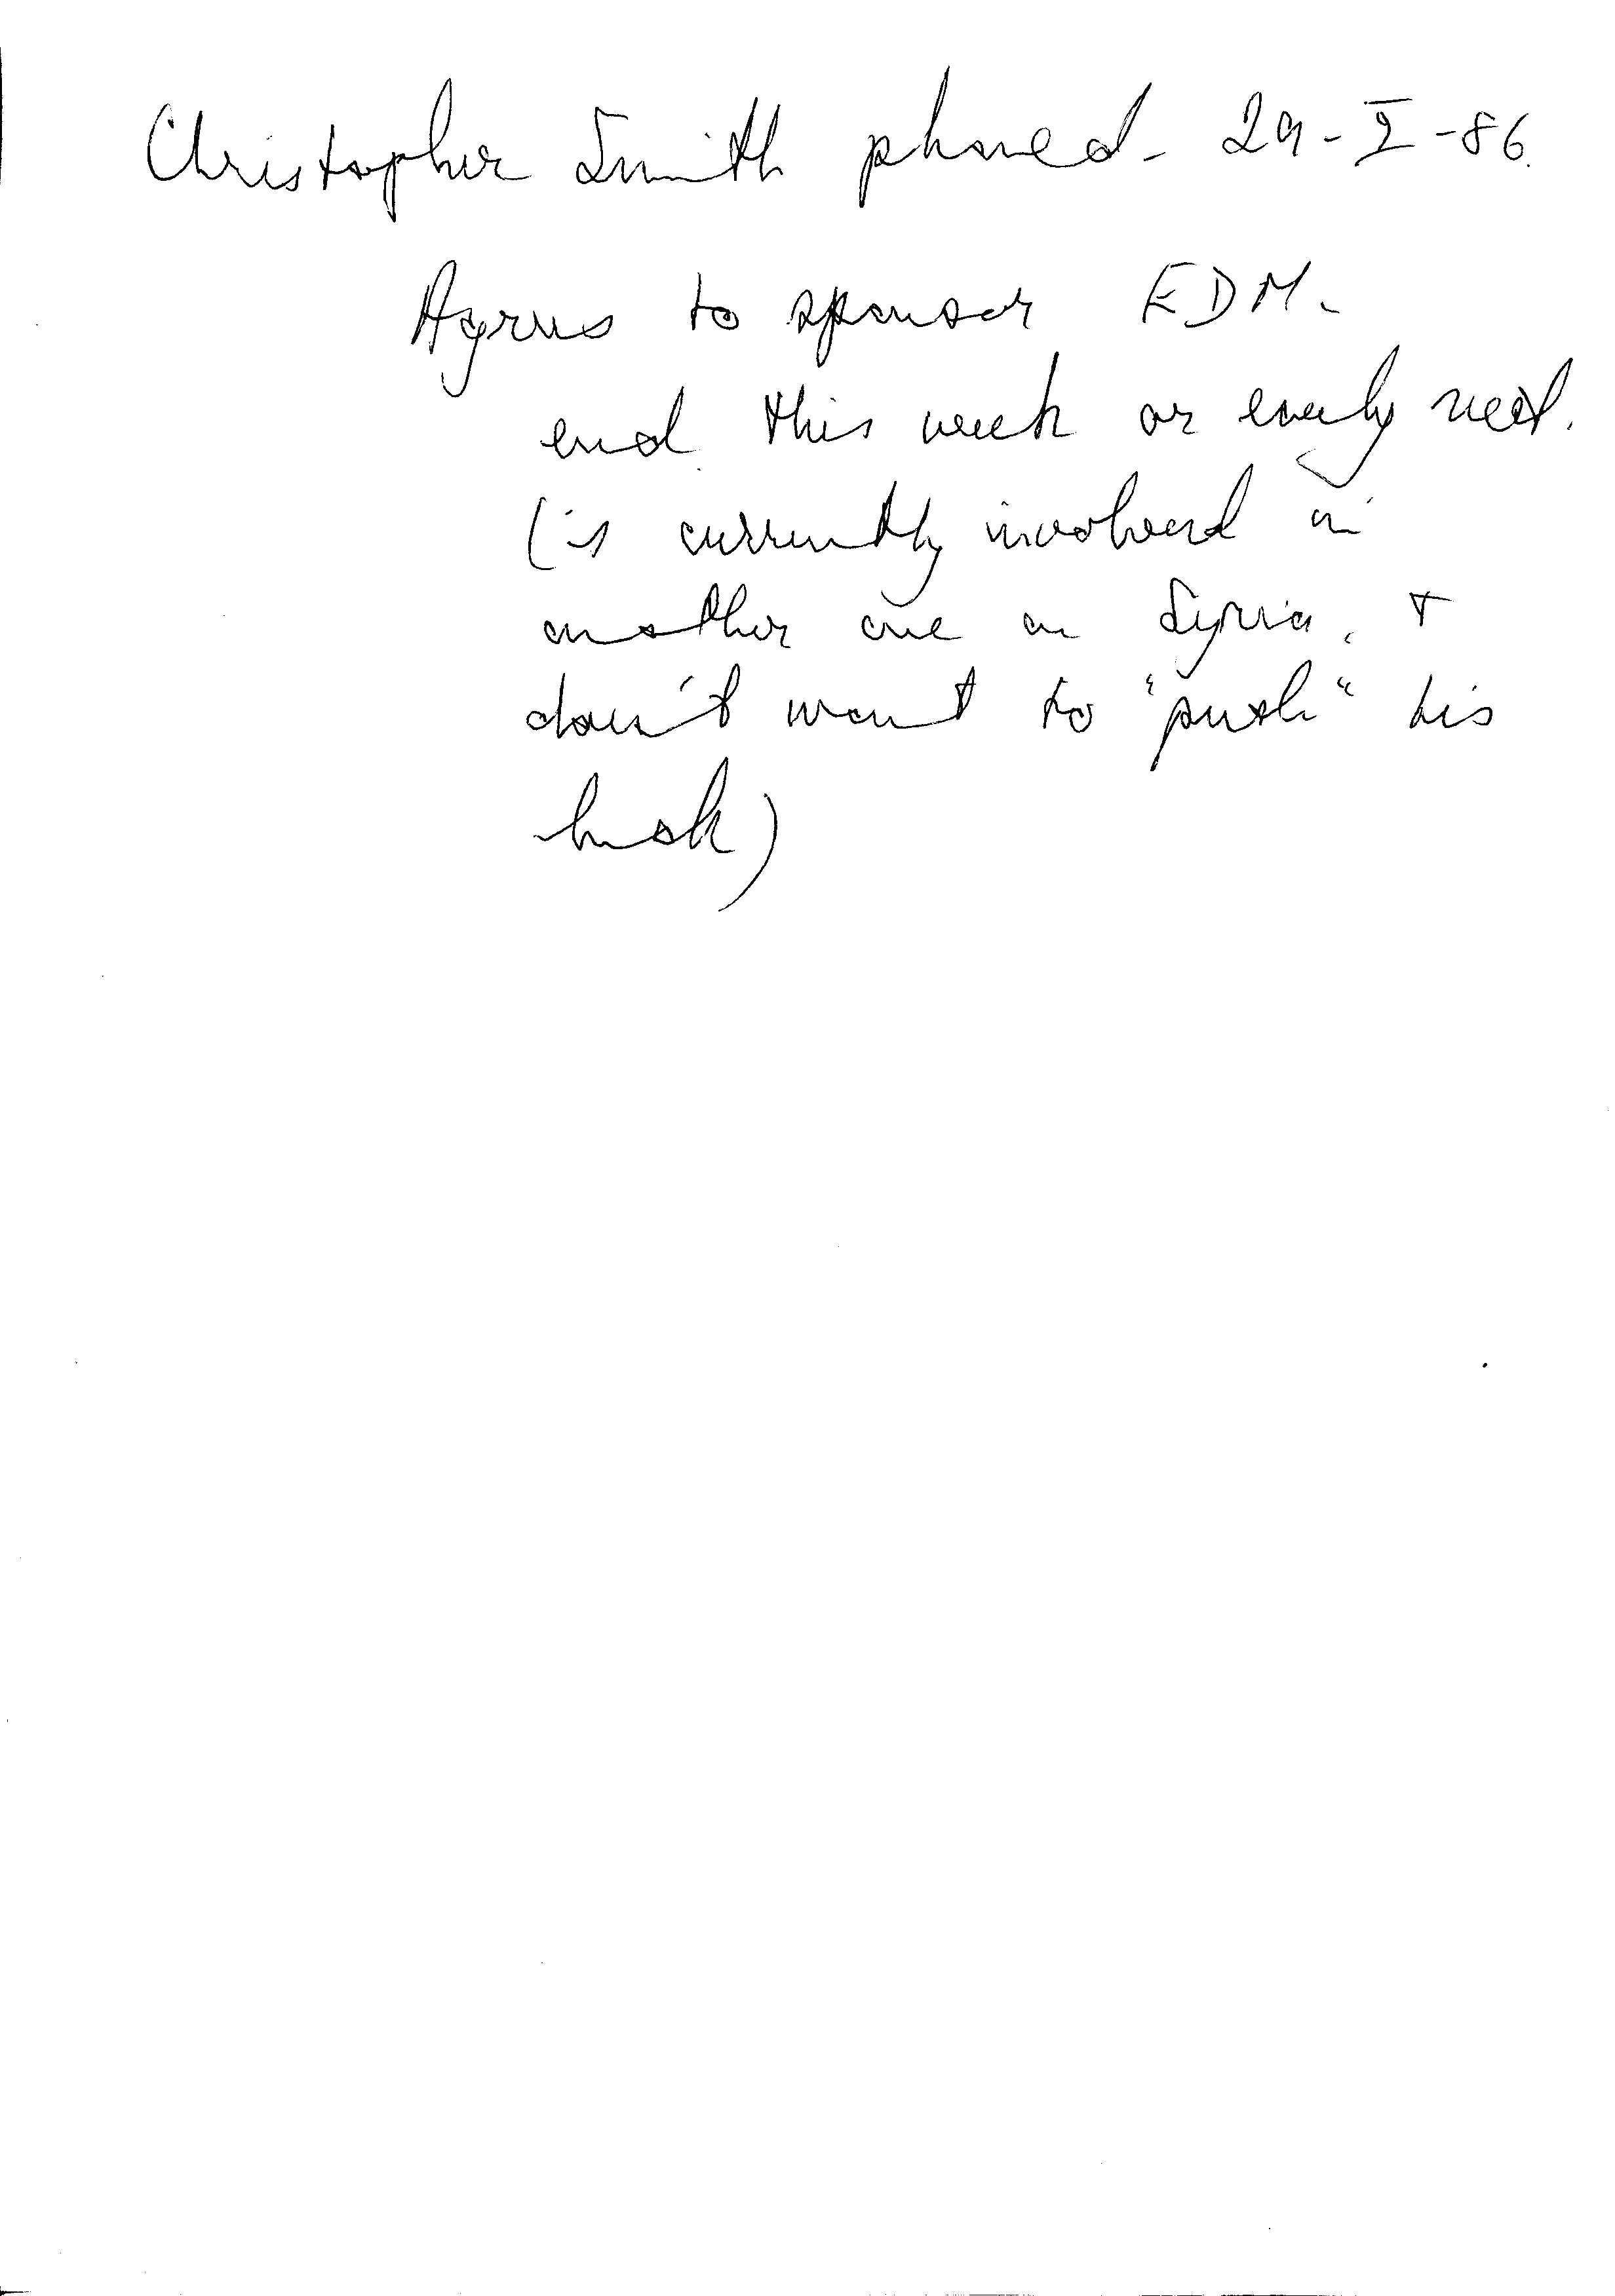 Christopher Smith phoned - 29-I-86.
Agrees to sponsor EDM -
end this week or early next.
(is currently involved in
another one on Syria, +
doesn't want to "push" his
luck)